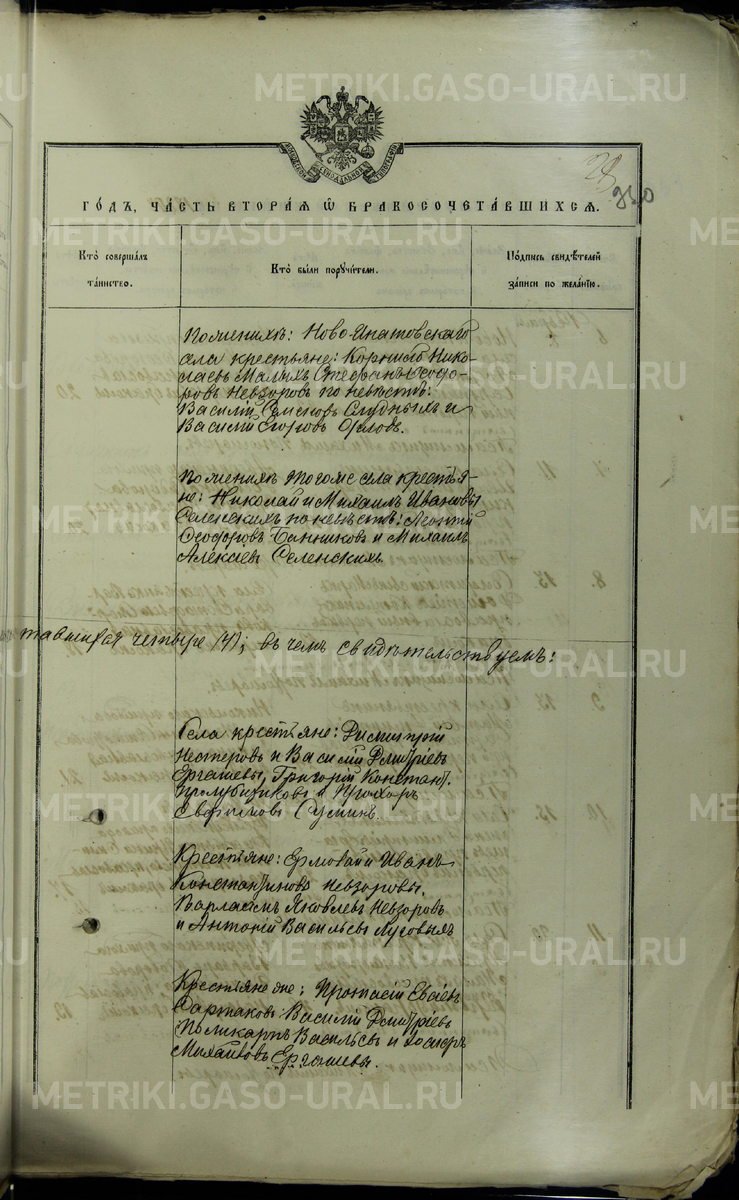 METRIKI.GASO-URAL.RU
28
350
го́дъ, ча́сть втора́ѧ ѡ̓ бракосочета́вшихсѧ.
Кто̀ совершалъ та́инство.
Кто̀ бы́ли порꙋчи́тели.
По́дпись свидѣ́телей за́писи по жела́нїю.
По женихѣ: Ново-Ипатовскаго
села крестьяне: Корнилій Нико-
лаевъ Малыхъ Стефанъ Ѳеодо-
ровъ Невзоровъ по невѣстѣ:
Василій Семеновъ Слудныхъ и
Василій Егоровъ Орловъ.
По женихѣ того же села крестья-
не: Николай и Михаилъ Ивановы
Селенскихъ по невѣстѣ: Леонтій
Ѳеодоровъ Банниковъ и Михаилъ
Алексѣевъ Селенскихъ.
тавшихся четыре /4/; въ чемъ свидѣтельствуемъ:
Села крестьяне: Димитрій
Нестеровъ и Василій Дмитріевъ
Ергашевы, Григорій Констант.
и Прохоръ
Евфимовъ
Крестьяне: Ермолай и Иванъ
Константиновы Невзоровы,
Варлаамъ Яковлевъ Невзоровъ
и Антоній Васильевъ Лусовыхъ
Крестьяне: Протасій
Василій Дмитріевъ
Поликарпъ Васильевъ и
Михайловъ Ергашевы.